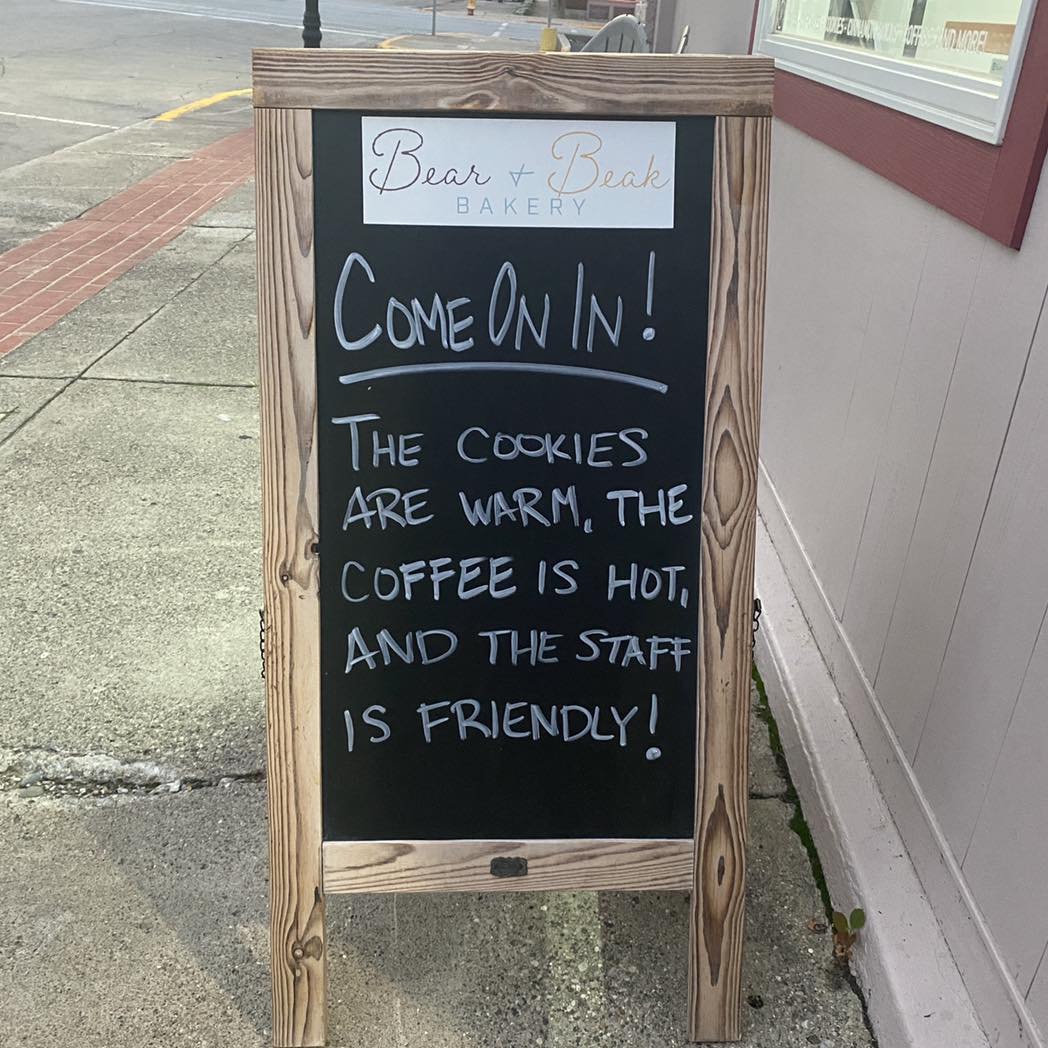 Bear & Beak
BAKERY
COME ON IN!
THE COOKIES
ARE WARM, THE
COFFEE IS HOT,
AND THE STAFF
IS FRIENDLY!
AND MORE!